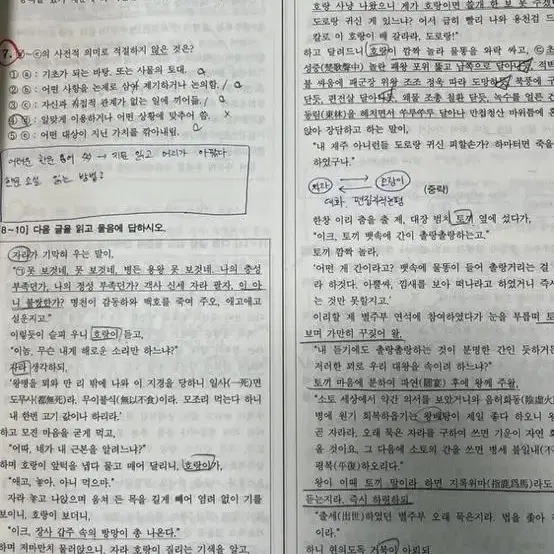 7. ⓐ~ⓔ의 사전적 의미로 적절하지 않은 것은?
① ⓐ : 기초가 되는 바탕. 또는 사물의 토대.
② ⓑ : 어떤 사항을 논제로 삼아 제기하거나 논의함.
③ ⓒ : 자신과 직접적 관계가 없는 일에 끼어듦.
④ ⓓ : 알맞게 이용하거나 어떤 상황에 맞추어 씀.
⑤ ⓔ : 어떤 대상이 지닌 가치를 깎아내림.
한문 소설 읽는 방법?
8~10] 다음 글을 읽고 물음에 답하시오.
자라가 기막혀 우는 말이,
“㉠못 보것네, 못 보것네, 병든 용왕 못 보것네. 나의 충성
부족던가, 나의 정성 부족던가? 객사 신세 자라 팔자, 이 아
니 불쌍한가? 명천이 감동하와 백호를 죽여 주오, 애고애고
설운지고.”
이렇듯이 슬피 우니 호랑이 듣고,
“이놈, 무슨 내게 해로운 소리만 하느냐?”
자라 생각하되,
‘왕명을 뫼와 만 리 밖에 나와 이 지경을 당하니 일사(一死)면
도무사(都無死)라, 무이불식(無以不食)이라. 모조리 먹는다 하니
내 한번 고기 값이나 하리라.’
하고 모진 마음을 굳게 먹고,
“어따, 네가 내 근본을 알려느냐?”
하며 호랑이 앞턱을 냅다 물고 떼어 달리니, 호랑이가,
“애고, 놓아, 아니 먹으마.”
자라 놓고 나앉으며 움쳐 든 목을 길게 빼어 염려 없이 기를
보이니, 호랑이 보더니,
“이크, 장사 갑주 속의 방망이 총 나온다.”
하며 저마만치 물러앉으니, 자라 호랑이 질리는 기색을 알고,
호랑 사냥 나왔으니 네가 호랑이면 쓸개 한 보 못 주겠
도로랑 귀신 게 있느냐? 어서 급히 빨리 나와 용천검 드
칼로 이 호랑이 배 갈라라, 도로랑!”
하고 달려드니 호랑이 깜짝 놀라 물똥을 와락 싸고, ㉡초
성중(楚歌聲中) 놀란 패왕 포위 뚫고 남쪽으로 달아나고, 적벽
불 싸움에 패군장 위왕 조조 정욱 따라 도망하듯, 북풍에
닫듯, 편전살 달아나듯, 왜물 조총 철환 닫듯, 녹수를 얼른
동림(東林)을 헤치면서 쑤루쑤루 달아나 만첩청산 바위틈에
앉아 장담하고 하는 말이,
“내 재주 아니런들 도로랑 귀신 피할손가? 하마터면 죽을
하였구나.”
자라
호랑이
(중략)
한창 이리 춤을 출 제, 대장 범치 토끼 옆에 섰다가,
“이크, 토끼 뱃속에 간이 촐랑촐랑하는고.”
토끼 깜짝 놀라,
“어떤 게 간이라고? 뱃속에 물똥이 들어 촐랑거리는 걸
라 하것다. 이쁠싸, 낌새를 보아 떠나라고 하였거니 즉시
는 것만 못할지고.”
이리할 제 별주부 연석에 참여하였다가 눈을 부릅떠 토
보며 가만히 꾸짖어 왈,
“내 듣기에도 촐랑촐랑하는 것이 분명한 간인 듯하거든
저러한 꾀로 우리 대왕을 속이려 하느냐?”
토끼 마음에 분하여 파연(罷宴) 후에 왕께 주왈,
“소토 세상에서 약간 의서를 보았거니와 음허화동(陰虛火
병에 원기 회복하옵기는 왕배탕이 제일 좋다 하오니 왕
곧 자라라. 오래 묵은 자라를 구하여 쓰면 기운이 자연 회
을 것이요, 그 다음에 소토의 간을 쓰면 병세 불일내(不
평복(平復)하오리다.”
왕이 이때 토끼 말이라 하면 지록위마(指鹿爲馬)라도
듣는지라. 즉시 하령하되,
“출세(出世)하였던 별주부 오래 묵은지라. 법을 좇아
라.”
하니 현의도독 거북이 아뢰되